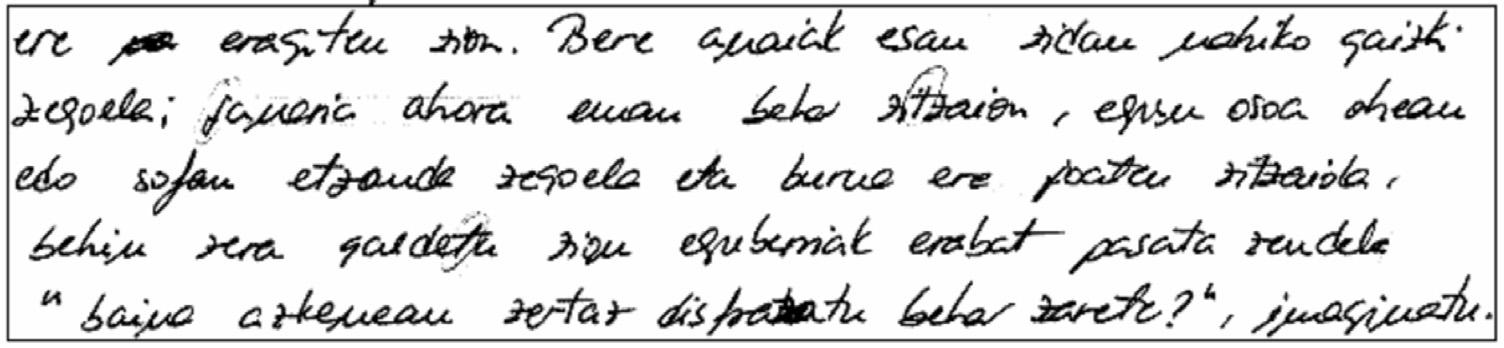 ere eragiten zion. Bere anaiak esan zidan nahiko gaizki
zegoela; janaria ahora eman behar zitzaion, egusu osoa ohean
edo sofan etzanda zegoela eta burua ere joaten zitzaiola,
behin zera galdetu zigun eguberriak erabat pasata zeudela
"baina azkenean zertaz disfrazatu behar zarete?", imaginatu.